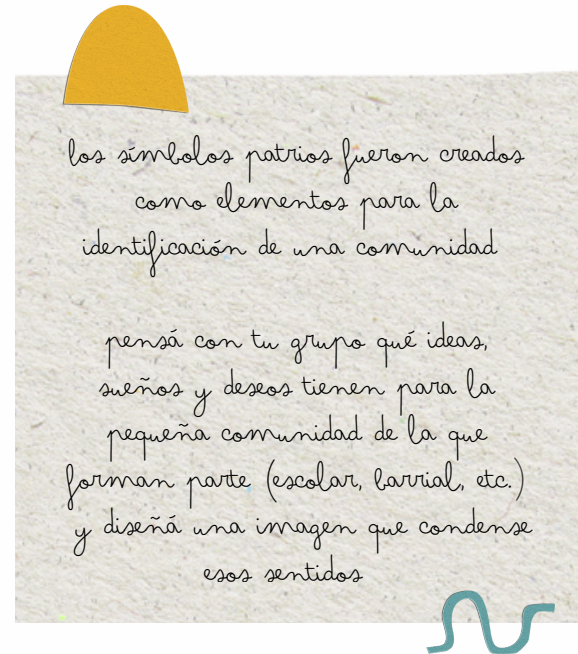 los símbolos patrios fueron creados
como elementos para la
identificación de una comunidad
pensá con tu grupo qué ideas,
sueños y deseos tienen para la
pequeña comunidad de la que
forman parte (escolar, barrial, etc.)
y diseñá una imagen que condense
esos sentidos